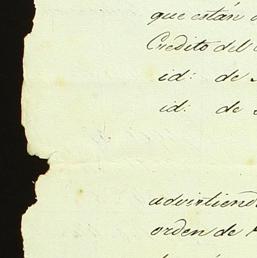 que están
Credito del
id: de
id: de
advirtiend
orden de